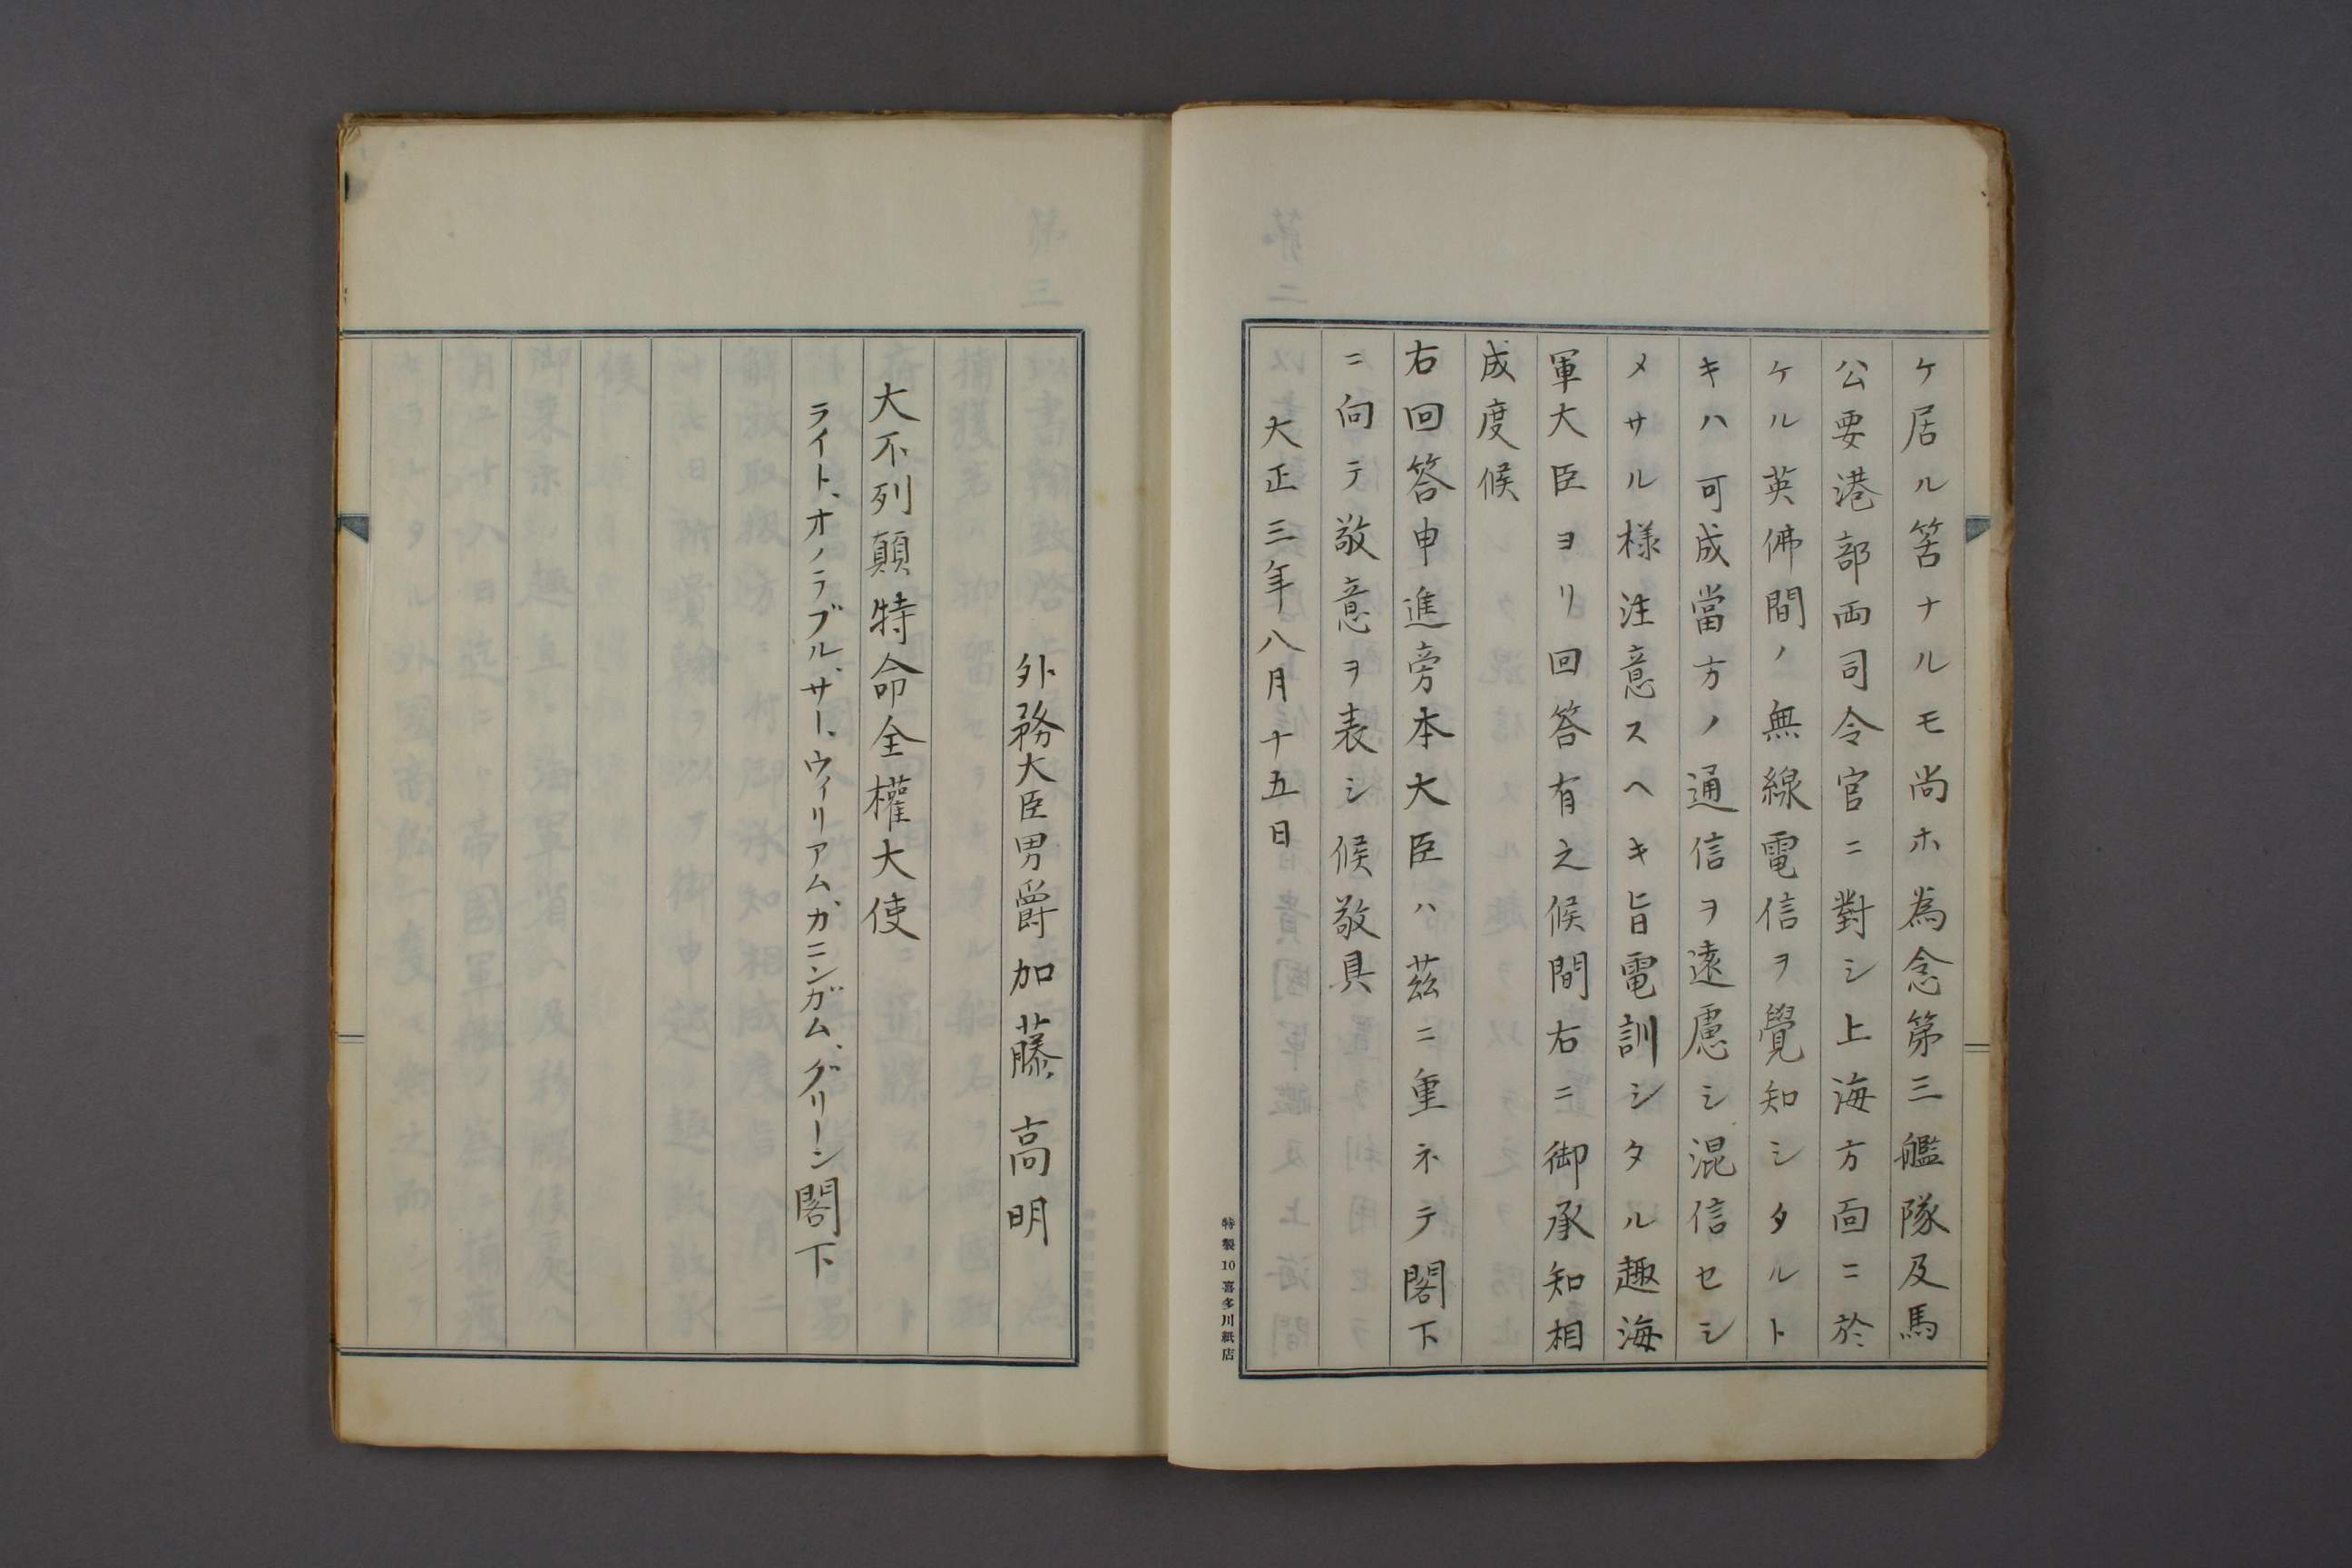 ケ居ル筈ナルモ尚ホ為念第三艦隊及馬
公要港部両司令官ニ對シ上海方面ニ於
ケル英佛間ノ無線電信ヲ覺知シタルト
キハ可成當方ノ通信ヲ遠慮シ混信セシ
メサル様注意スヘキ旨電訓シタル趣海
軍大臣ヨリ回答有之候間右ニ御承知相
成度候
右回答申進旁本大臣ハ茲ニ重ネテ閣下
ニ向テ敬意ヲ表シ候敬具
大正三年八月十五日
特製10喜多川紙店
外務大臣男爵加藤高明
大不列顛特命全權大使
ライト、オノラブル、サー、ウィリアム、カニンガム、グリーン閣下